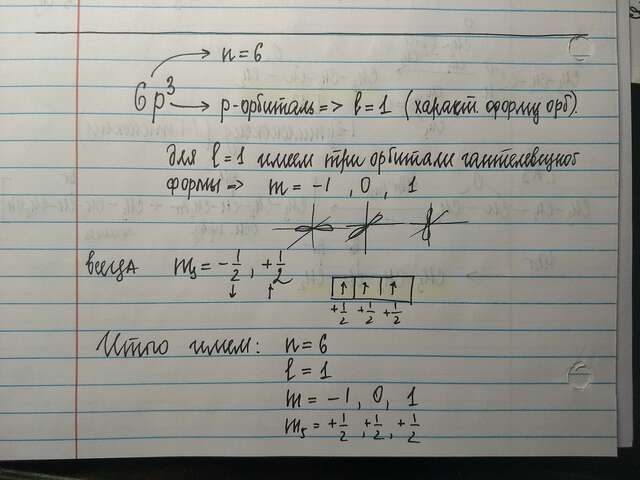 n = 6
6p³ → p-орбиталь => l = 1 (характ. форму орб).
для l = 1 имеем три орбитали гантелевидной
формы => m = -1 , 0 , 1
всегда m_s = -1/2 , +1/2
↓ ↑
↑ ↑ ↑
+1/2 +1/2 +1/2
Итого имеем: n = 6
l = 1
m = -1, 0, 1
m_s = +1/2 , +1/2 , +1/2